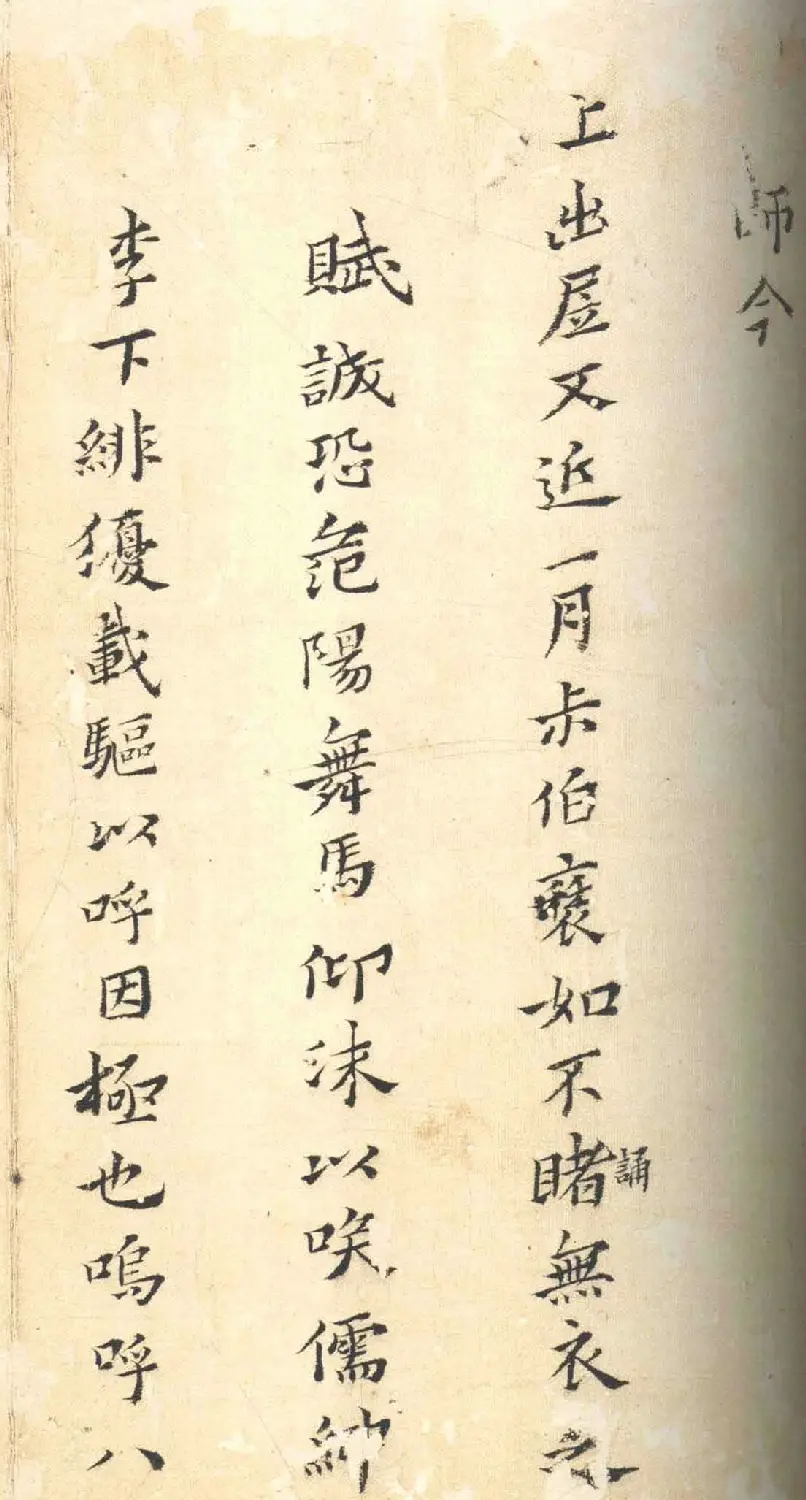 師今
上出又近一月尗伯褎如不睹誦無衣之
賦誠恐范陽舞馬仰沫以唉儒紳
李下緋優載驅以呼因極也嗚呼八